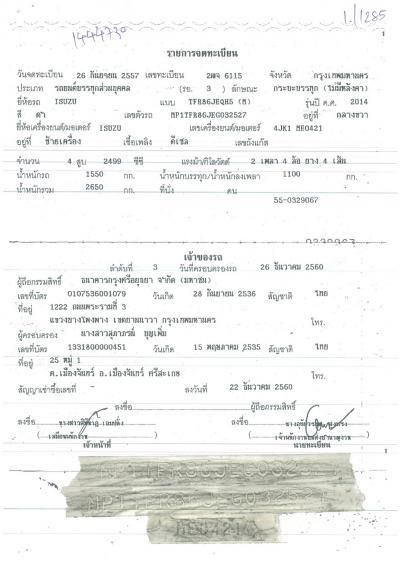 1./1285
1444730
1
รายการจดทะเบียน
วันจดทะเบียน 26 กันยายน 2557 เลขทะเบียน 2ฒจ 6115 จังหวัด กรุงเทพมหานคร
ประเภท รถยนต์บรรทุกส่วนบุคคล (รย. 3) ลักษณะ กระบะบรรทุก (ไม่มีหลังคา)
ยี่ห้อรถ ISUZU แบบ TFR86JEQH5 (M) รุ่นปี ค.ศ. 2014
สี ดำ เลขตัวรถ MP1TFR86JEG032527 อยู่ที่ กลางขวา
ยี่ห้อเครื่องยนต์/มอเตอร์ ISUZU เลขเครื่องยนต์/มอเตอร์ 4JK1 ME0421
อยู่ที่ ซ้ายเครื่อง เชื้อเพลิง ดีเซล เลขถังแก๊ส
จำนวน 4 สูบ 2499 ซีซี แรงม้า/กิโลวัตต์ 2 เพลา 4 ล้อ ยาง 4 เส้น
น้ำหนักรถ 1550 กก. น้ำหนักบรรทุก/น้ำหนักลงเพลา 1100 กก.
น้ำหนักรวม 2650 กก. ที่นั่ง คน
55-0329067
เจ้าของรถ
ลำดับที่ 3 วันที่ครอบครองรถ 26 ธันวาคม 2560
ผู้ถือกรรมสิทธิ์ ธนาคารกรุงศรีอยุธยา จำกัด (มหาชน)
เลขที่บัตร 0107536001079 วันเกิด 28 กันยายน 2536 สัญชาติ ไทย
ที่อยู่ 1222 ถนนพระรามที่ 3
แขวงบางโพงพาง เขตยานนาวา กรุงเทพมหานคร โทร.
ผู้ครอบครอง นางสาวสุภาภรณ์ บุญเพิ่ม
เลขที่บัตร 1331800000451 วันเกิด 15 พฤษภาคม 2535 สัญชาติ ไทย
ที่อยู่ 25 หมู่ 1
ต.เมืองจันทร์ อ.เมืองจันทร์ ศรีสะเกษ โทร.
สัญญาเช่าซื้อเลขที่ ลงวันที่ 22 ธันวาคม 2560
ลงชื่อ ผู้ถือกรรมสิทธิ์
ลงชื่อ ลงชื่อ
เจ้าหน้าที่ นายทะเบียน
1